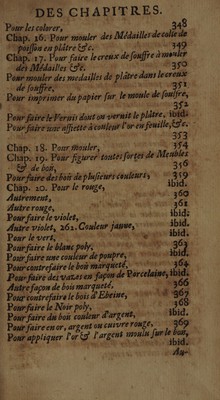 DES CHAPITRES.
Pour les colorer, 348
Chap. 16. Pour mouler des Médailles de colle de
poisson en plâtre &c. 349
Chap. 17. Pour faire le creux de souffre à mouler
des Médailles &c. 350
Pour mouler des medailles de plâtre dans le creux
de souffre, 351
Pour imprimer du papier sur le moule de souffre,
352
Pour faire le Vernis dont on vernit le plâtre, ibid.
Pour faire une assiette à couleur l'or en feuille, &c.
353
Chap. 18. Pour mouler, 354
Chap. 19. Pour figurer toutes sortes de Meubles
& de bois, 356
Pour faire des bois de plusieurs couleurs, 359
Chap. 20. Pour le rouge, ibid.
Autrement, 360
Autre rouge, 361
Pour faire le violet, ibid.
Autre violet, 262. Couleur jaune, ibid.
Pour le vert, ibid.
Pour faire le blanc poly, 363
Pour faire une couleur de poupre, ibid.
Pour contrefaire le bois marqueté, 364
Pour faire des vazes en façon de Porcelaine, ibid.
Autre façon de bois marqueté, 366
Pour contrefaire le bois d'Ebeine, 367
Pour faire le Noir poly, 368
Pour faire du bois couleur d'argent, ibid.
Pour faire en or, argent ou cuivre rouge, 369
Pour appliquer l'or & l'argent moulu sur le bois,
ibid.
Au-